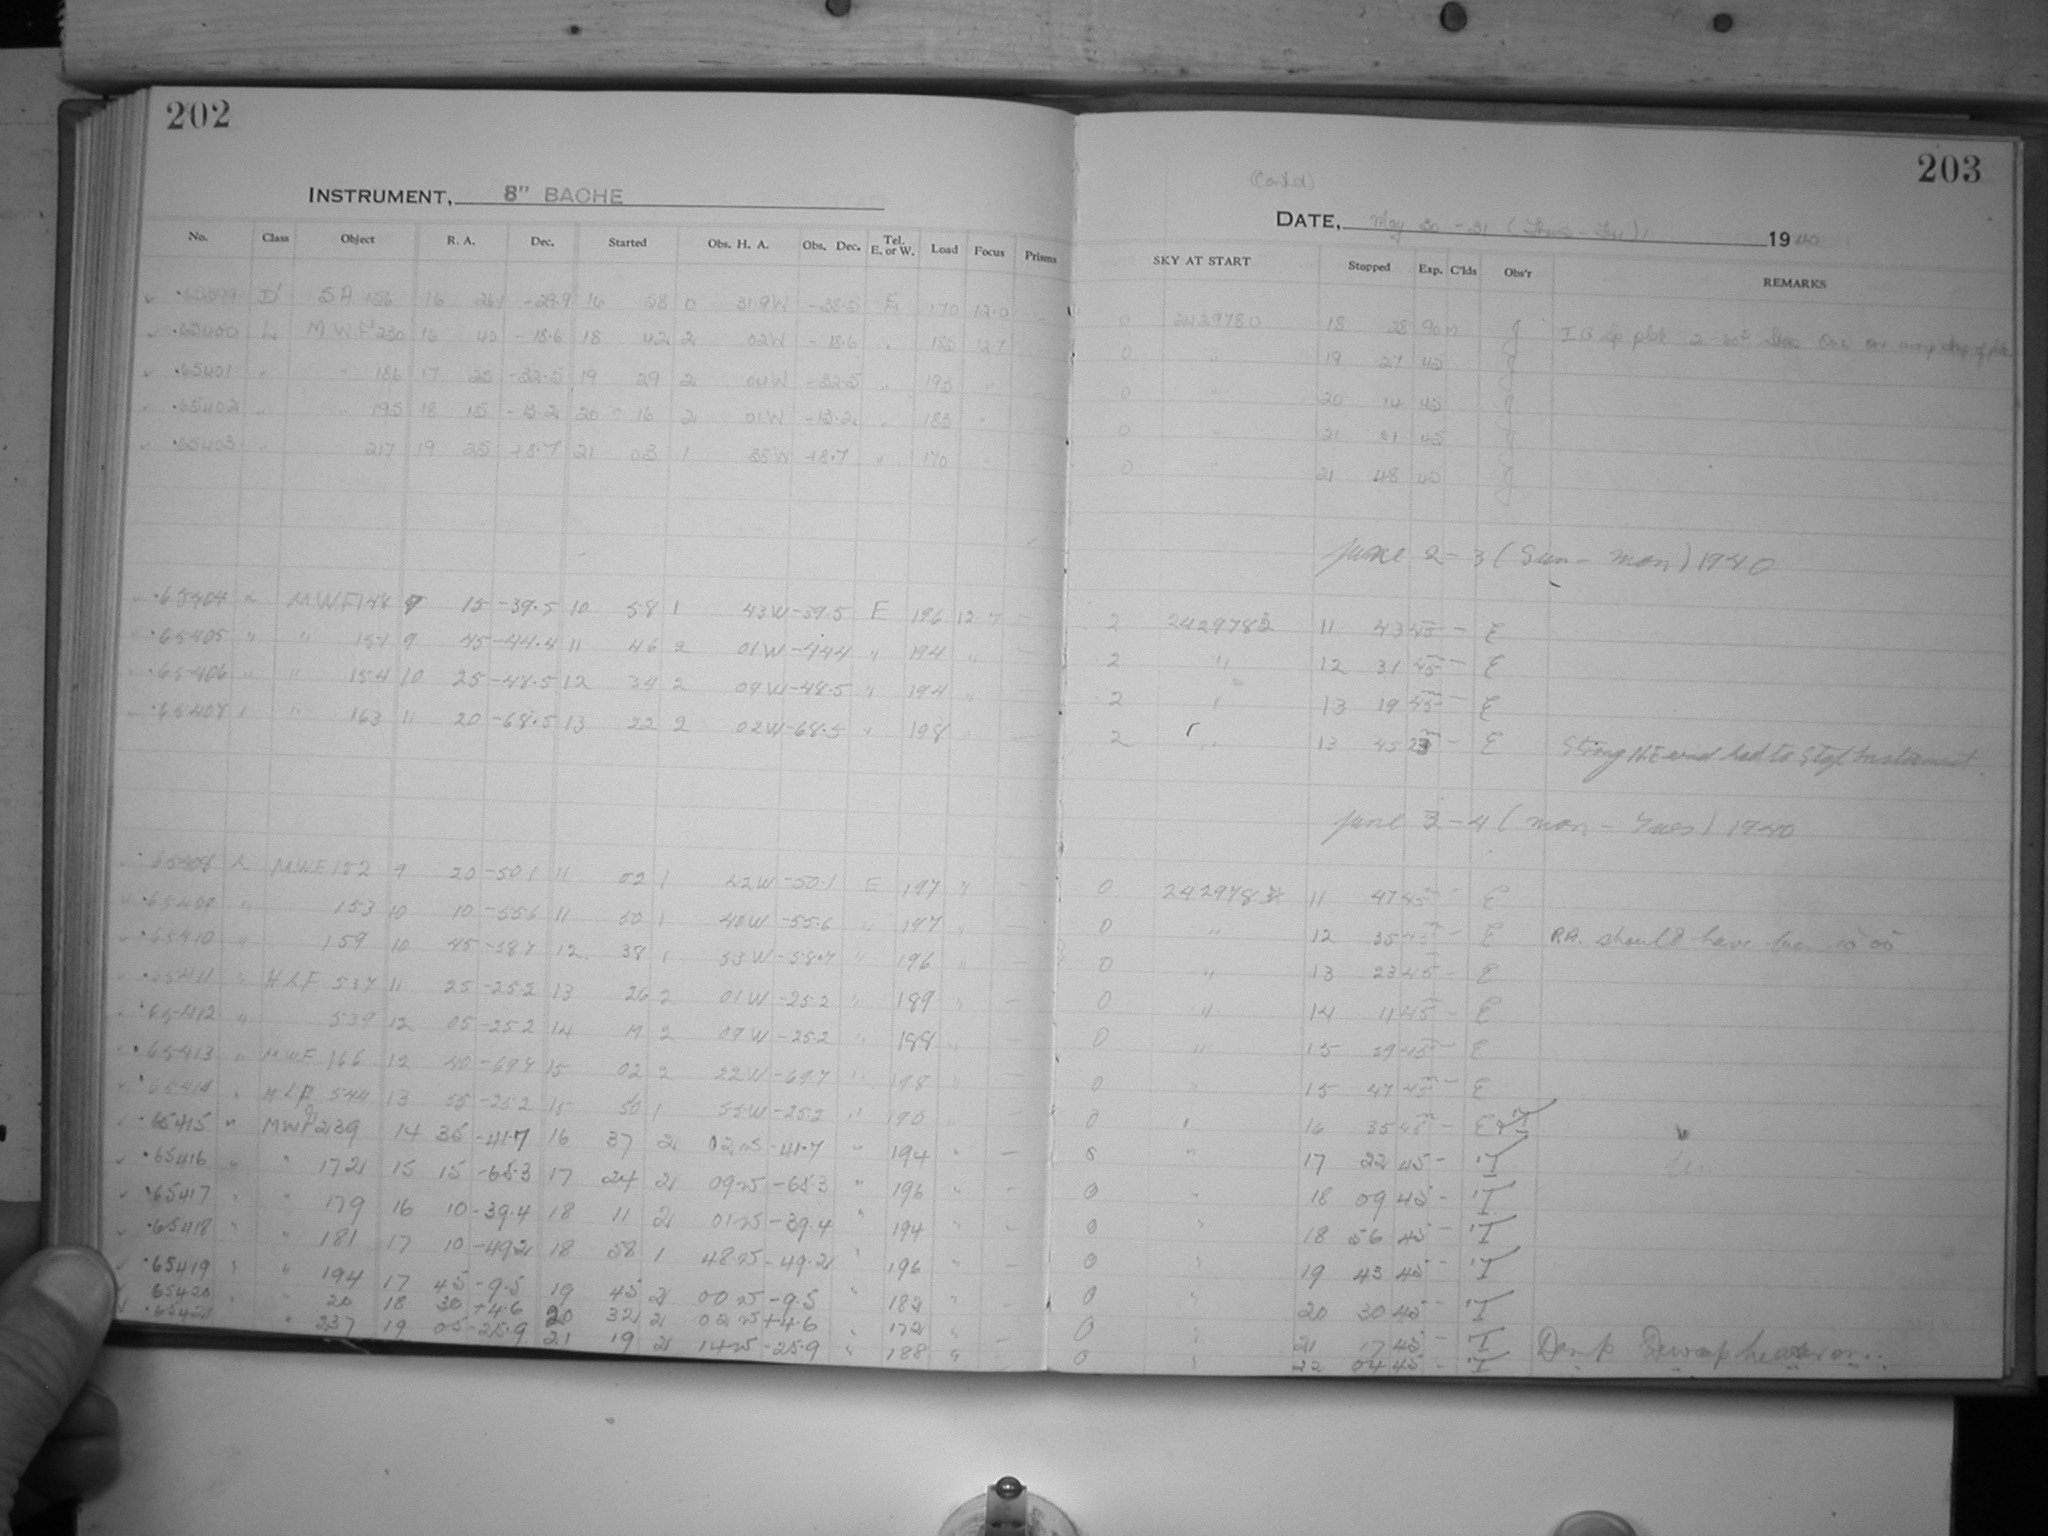 202
INSTRUMENT, 8" BACHE
No. Class Object R. A. Dec. Started Obs. H. A. Obs. Dec. Tel. E. or W. Load Focus Prisms
.65399 D' SA 156 16 26.1 -29.9 16 58 0 31.9W -38.5 E 170 12.0
.65400 L MWF 230 16 40 -18.6 18 42 2 02W -18.6 " 185 12.7
.65401 " " 186 17 25 -32.5 19 29 2 04W -32.5 " 193 "
.65402 " " 195 18 15 -13.2 20 16 2 01W -13.2 " 183 "
.65403 " 217 19 25 +8.7 21 03 1 35W +8.7 " 170 "
.65404 MWF 148 9 15 -39.5 10 58 1 43W -39.5 E 196 12.7 -
.65405 " " 151 9 45 -44.4 11 46 2 01W -44.4 " 194 " -
.65406 " " 154 10 25 -48.5 12 34 2 09W -48.5 " 194 " -
.65407 " " 163 11 20 -68.5 13 22 2 02W -68.5 " 198 " -
.65408 MWF 152 9 20 -50.1 11 02 1 42W -50.1 E 197 " -
.65409 " 153 10 10 -55.6 11 50 1 40W -55.6 " 197 " -
.65410 " 159 10 45 -58.7 12 38 1 53W -58.7 " 196 " -
.65411 " HLF 537 11 25 -25.2 13 26 2 01W -25.2 " 189 " -
.65412 " 539 12 05 -25.2 14 14 2 09W -25.2 " 188 " -
.65413 " MWF 166 12 40 -69.7 15 02 2 22W -69.7 " 198 " -
.65414 " HLF 544 13 55 -25.2 15 50 1 55W -25.2 " 190 " -
.65415 " MWF 239 14 35 -41.7 16 37 2 02W -41.7 " 194 " -
.65416 " " 172 15 15 -65.3 17 24 2 09W -65.3 " 196 " -
.65417 " " 179 16 10 -39.4 18 11 2 01W -39.4 " 194 " -
.65418 " " 181 17 10 -49.2 18 58 1 48W -49.2 " 196 " -
.65419 " " 194 17 45 -9.5 19 45 2 00W -9.5 " 182 " -
.65420 " " 20 18 30 +4.6 20 32 2 02W +4.6 " 172 " -
.65421 " 237 19 05 -25.9 21 19 2 14W -25.9 " 188 " -
203
(Contd)
DATE, May 30-31 (Thurs-Fri), 1940
SKY AT START Stopped Exp. C'lds Obs'r REMARKS
0 2429780 18 28 90m g
0 " 19 27 45 g
0 " 20 14 45 g
0 " 21 01 45 g
0 " 21 48 45 g
June 2-3 (Sun-Mon) 1940
2 2429783 11 43 45m - E
2 " 12 31 45m - E
2 " 13 19 45m - E
2 " 13 45 23m - E Strong N.E wind had to Stop Instrument.
June 3-4 (Mon-Tues) 1940
0 11 47 45m - E
0 " 12 35 45m - E RA. should have been 10 00
0 " 13 23 45m - E
0 " 14 11 45m - E
0 " 15 45m - E
0 " 15 47 45m - E
0 " 16 35 45m - E & T
" 17 22 45 - T
0 " 18 09 45 - T
0 " 18 56 45 - T
0 " 19 43 45 - T
0 " 20 30 45 - T
0 " 21 17 45 - T
0 " 22 04 45 - T